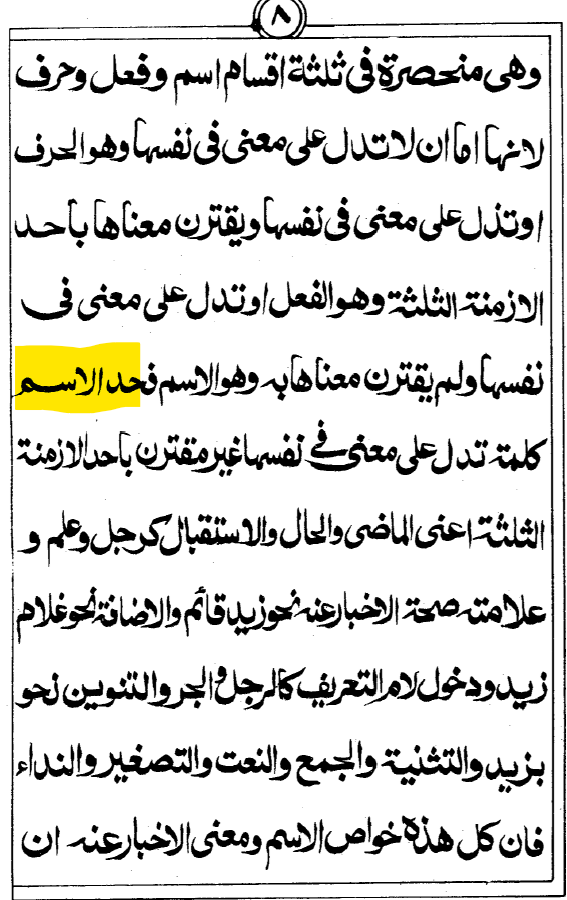 ٨
وهى منحصرة فى ثلثة اقسام اسم وفعل وحرف
لانها اما ان لا تدل على معنى فى نفسها وهو الحرف
او تذل على معنى فى نفسها ويقترن معناها باحد
الازمنة الثلثة وهو الفعل او تدل على معنى فى
نفسها ولم يقترن معناها به وهو الاسم فحد الاسم
كلمة تدل على معنى فى نفسها غير مقترن باحد الازمنة
الثلثة اعنى الماضى والحال والاستقبال كرجل وعلم و
علامته صحة الاخبار عنه نحو زيد قائم والاضافة نحو غلام
زيد ودخول لام التعريف كالرجل والجر والتنوين نحو
بزيد والتثنية والجمع والنعت والتصغير والنداء
فان كل هذه خواص الاسم ومعنى الاخبار عنه ان